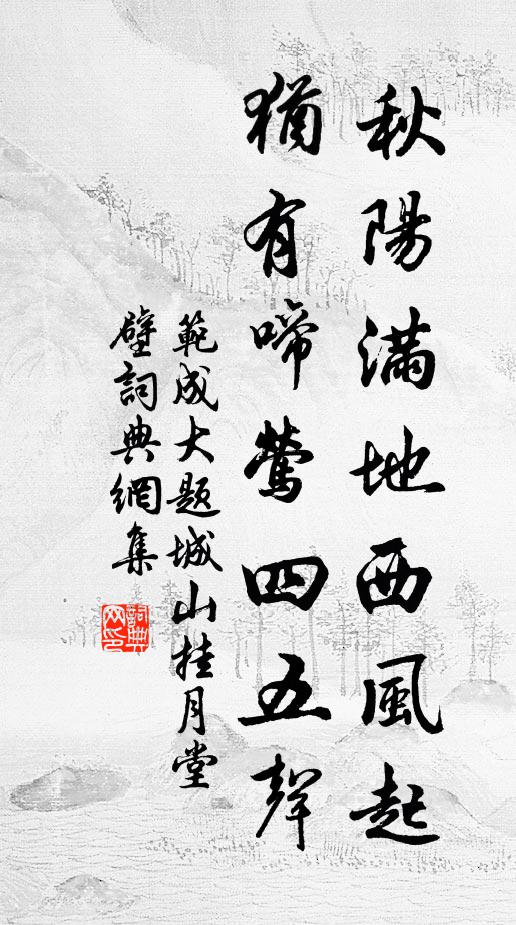 秋陽滿地西風起
猶有啼鶯四五聲
範成大题城山挂月堂
壁詞典網集
詞典
网印